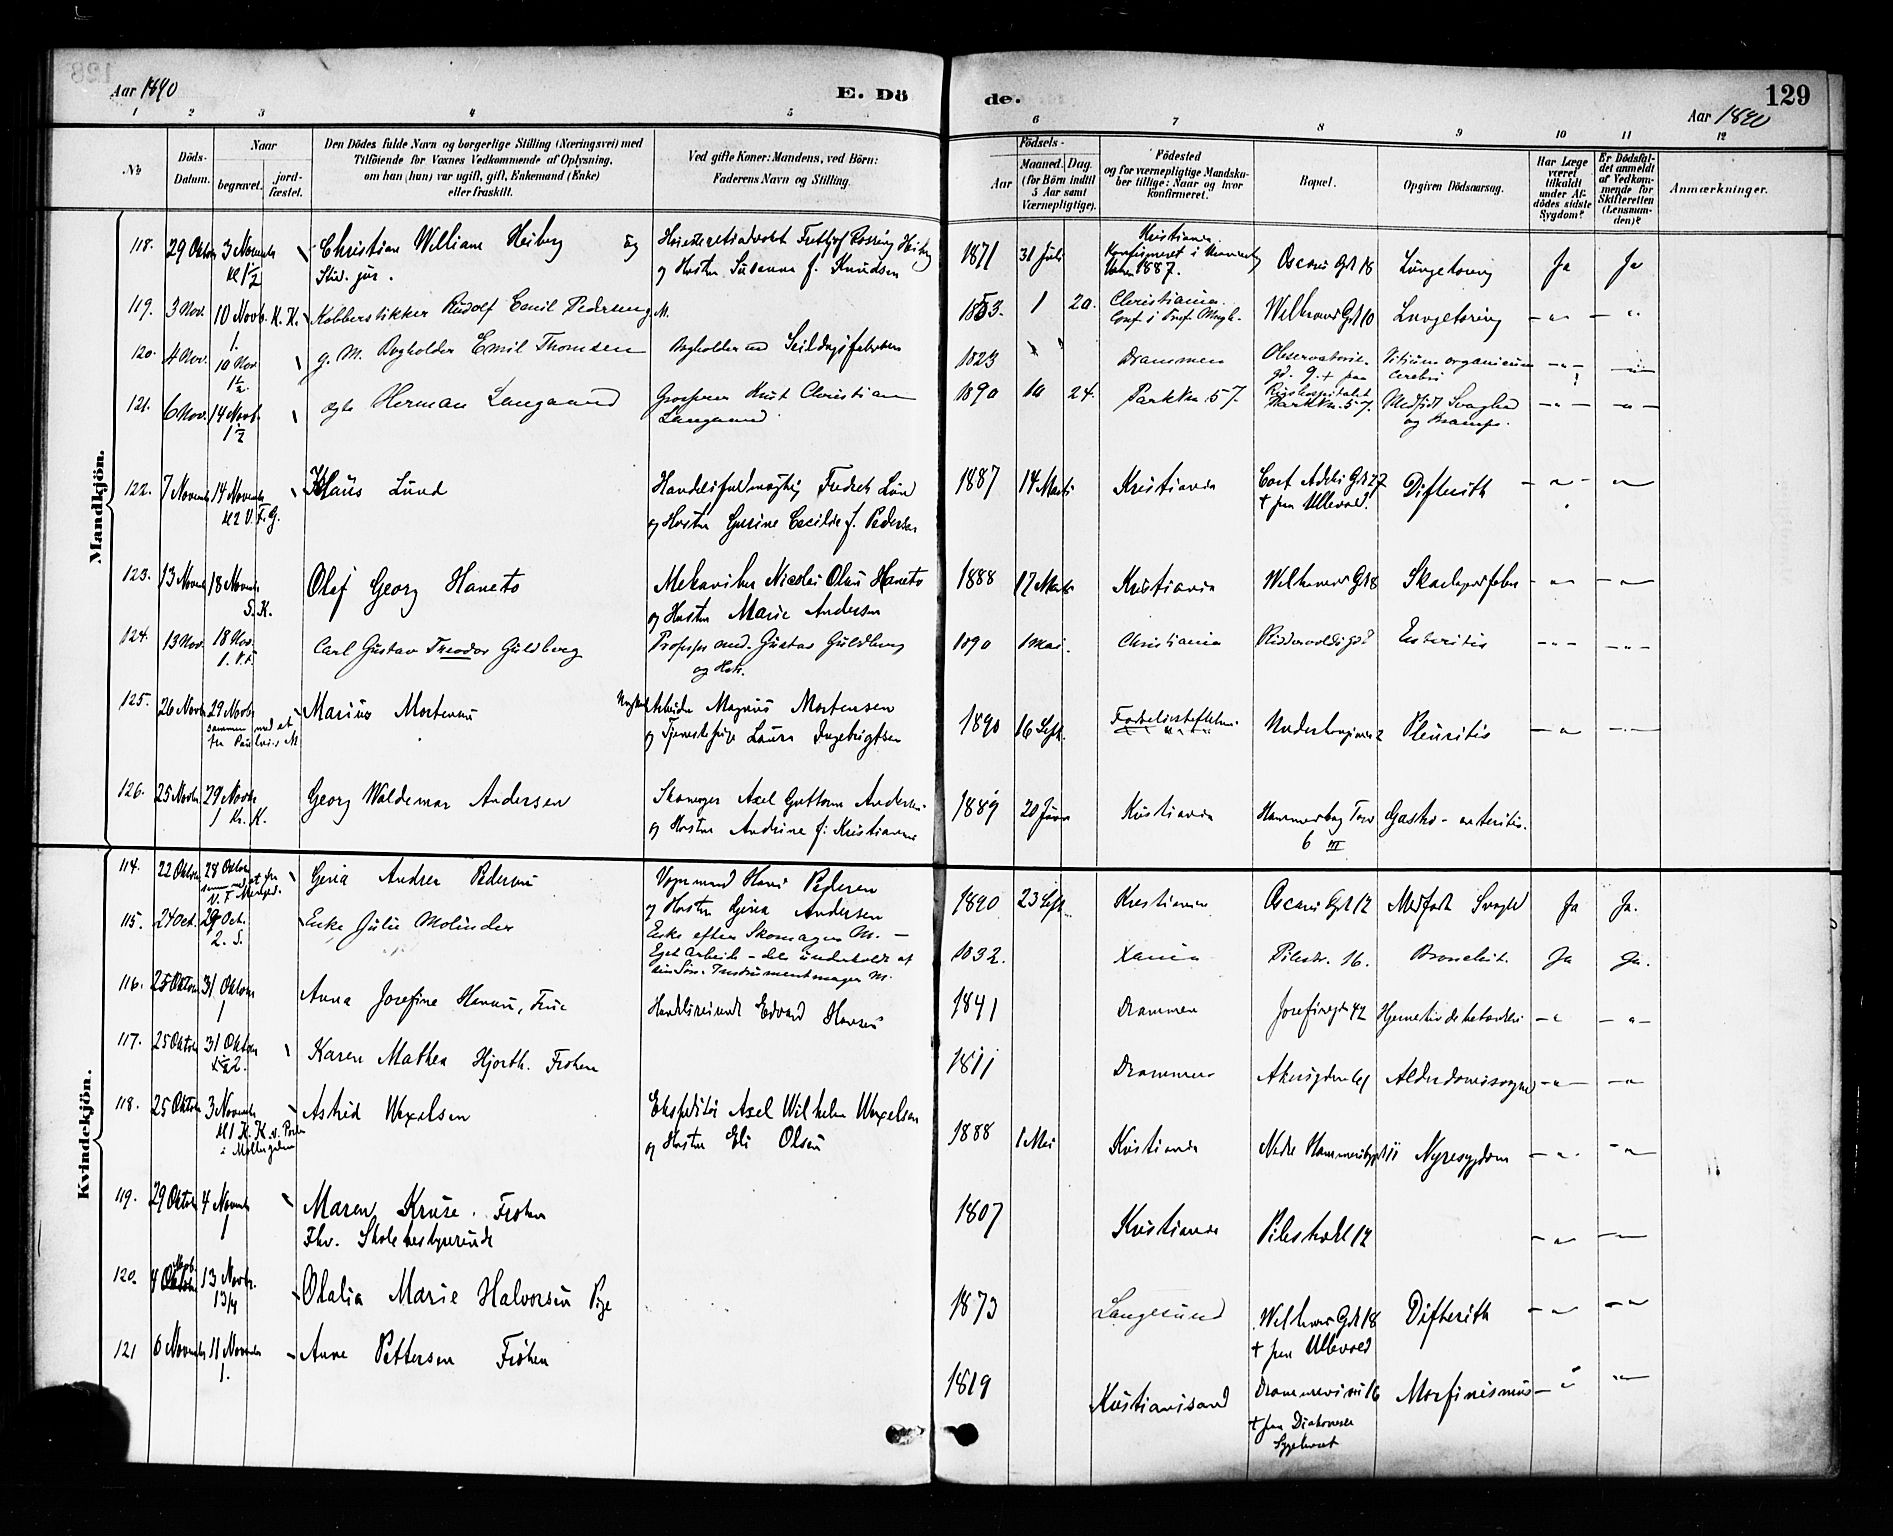 Aar 1890
E. Dö
de.
129
Aar 1890
1 2 3 4 5 6 7 8 9 10 11 12
No
Döds-Datum.
Naar
begravet.
jord-fæstet.
Den Dödes fulde Navn og borgerlige Stilling (Næringsvei) med
Tilföiende for Voxnes Vedkommende af Oplysning,
om han (hun) var ugift, gift, Enkemand (Enke)
eller fraskilt.
Ved gifte Koner: Mandens, ved Börn:
Faderens Navn og Stilling.
Födsels-
Aar
Maaned. Dag.
(for Börn indtil
5 Aar samt
Værnepligtige).
Födested
og for værnepligtige Mandska-
ber tillige: Naar og hvor
konfirmeret.
Bopæl.
Opgiven Dödsaarsag.
Har Læge
været
tilkaldt
under Af-
dödes sidste
Sygdom?
Er Dödsfal-
det anmeldt
af Vedkom-
mende for
Skifteretten
(Lensman-
den)?
Anmærkninger.
Mandkjön.
118. 29 Oktbr 3 Novembr Christian William Heiberg Ug Høiesteretsadvokat Heiberg 1871 31 Juli Kristiania Oscars Gd 18 Lungetæring Ja Ja
Kl 1½ Stud. jur. og Hustru Susanna f. Knudsen Konfirmeret i 1887.
119. 3 Nov. 10 Novb. K. K. Kobberstikker Rudolf Emil Pedersen g. M. 1853. 1 20. Christiania. Wilhelms Gd 10 Lungetæring — " — — " —
120. 4 Nov. 10 Nov 1½. g. M. Bogholder Emil Thomsen Bogholder ved Seildugsfabriken 1823 Drammen Observatorie-gd. 9. + paa Rigshospitalet Vitium organicum cerebri — " — — " —
121. 6 Nov. 14 Novb. 1½ ægte Herman Langaard Grosserer Knut Christian 1890 10 24. Parkv. 57. Parkv. 57. Medfödt Svaghed — " — — " —
Langaard og Krampe.
122. 7 Novembr 14 Novembr Klaus Lund Handelsfuldmægtig Fredrik Lund 1887 14 Marts Kristiania Cort Adelers Gd 27 Difterith — " — — " —
Kl 2 V. F. G. og Hustru Gusine Cecilie f. Pedersen + paa Ullevold.
123. 13 Novembr 18 Novembr Olaf Georg Haneto Mekaniker Nicolai Olsen Haneto 1888 17 Marts Kristiania Wilhelms Gd 8 Skarlagensfeber — " — — " —
S. K. og Hustru Marie Andersen
124. 13 Nov. 18 Nov. Carl Gustav Theodor Guldberg Professor med. Gustav Guldberg 1890 1 Mai. Christiania Enteritis — " — — " —
1. V. F. og Hstr.
125. 26 Novbr 29 Novbr Marius Mortensen Ungkarl Arbeider Magnus Mortensen 1890 16 Septb. Födselsstiftelsen Pleuritis — " — — " —
sammen med et og Tjenestepige Laura Ingebrigtsen
126. 25 Novbr 29 Novbr Georg Waldemar Andersen Skomager Axel Guttorm Andersen 1889 20 Juni Kristiania Hammersborg Torv Gastro - enteritis.
1 Kr. K. og Hustru Andrine f. Kristiansen 6 III
Kvindekjön.
114. 22 Oktbr 28 Oktbr Gina Andrea Pedersen Vognmand Hans Pedersen 1890 23 Septb. Kristiania Oscars Gd 12 Medfödt Svaghed Ja Ja.
og Hustru Gina Andersen
115. 24 Oct. 29 Oct. Enke Julie Molinder Enke efter Skomager M. — 1832. Xania Pilestr. 16. Bronchit. Ja Ja.
2. S. Eget Arbeide - dels underholdt af
sin Sön. Instrumentmager M.
116. 25 Oktbr 31 Oktbr Anna Josefine Hansen, Frue Handelsreisende Edvard Hansen 1841 Drammen Josefinegd 42 — " — — " —
1
117. 25 Oktbr 31 Oktbr Karen Mathea Hjorth. Fröken 1811 Drammen Akersgaden 61 Alderdomssvaghed — " — — " —
Kl 2.
118. 25 Oktbr 3 Novembr Astrid Wexelsen Ekspeditör Axel Wilhelm Wexelsen 1888 1 Mai Kristiania Nedre Hammersborggd 11 Nyresygdom — " — — " —
Kl 1 K. K. v. og Hustru Eli Olsen
i Möllergaden
119. 29 Oktbr 4 Novembr Maren Kruse. Fröken 1807 Kristiania Pilestrædet 12 — " — — " —
1 Fhv. Skolebestyrerinde
120. 4 Novb. 13 Novbr. Othalia Marie Halvorsen Pige 1873 Langesund Wilhelms Gd 18 Difterith — " — — " —
13/4 + paa Ullevold
121 6 Novembr 11 Novembr Anne Pettersen Fröken 1819 Kristianssand Drammensveien 16 Morfinismus — " — — " —
1. + paa Diakonisse
Sygehuset